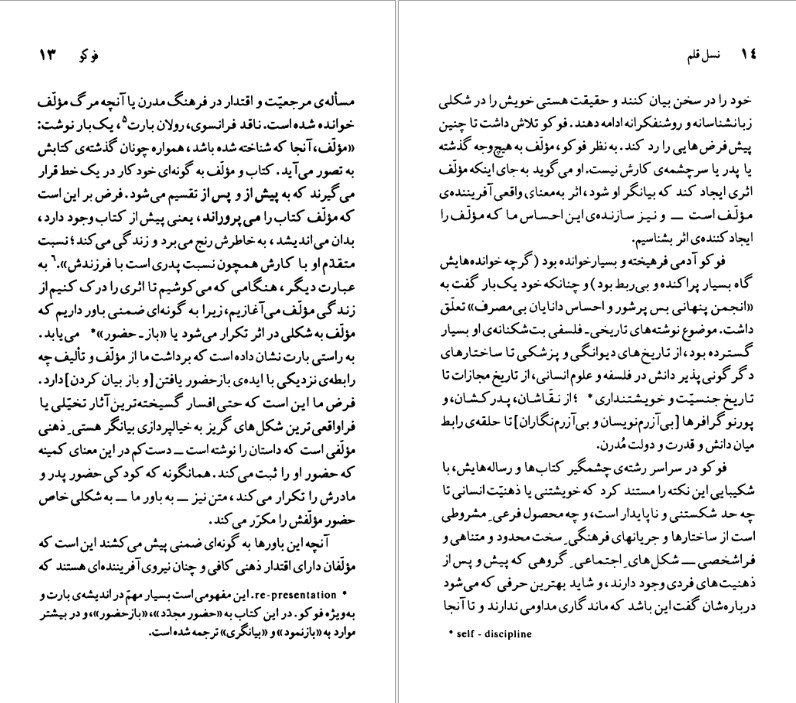 فوکو    ۱۳
مسأله‌ی مرجعیّت و اقتدار در فرهنگ مدرن یا آنچه مرگ مؤلف
خوانده شده است. ناقد فرانسوی، رولان بارت⁵، یک‌بار نوشت:
«مؤلف، آنجا که شناخته شده باشد، همواره چونان گذشته‌ی کتابش
به تصور می‌آید. کتاب و مؤلف به گونه‌ای خود کار در یک خط قرار
می‌گیرند که به پیش از و پس از تقسیم می‌شود. فرض بر این است
که مؤلف کتاب را می‌پروراند، یعنی پیش از کتاب وجود دارد،
بدان می‌اندیشد، به خاطرش رنج می‌برد و زندگی می‌کند؛ نسبت
متقدّم او با کارش همچون نسبت پدری است با فرزندش».⁶ به
عبارت دیگر، هنگامی که می‌کوشیم تا اثری را درک کنیم از
زندگی مؤلف می‌آغازیم، زیرا به گونه‌ای ضمنی باور داریم که
مؤلف به شکلی در اثر تکرار می‌شود یا «باز ـ حضور»* می‌یابد.
به راستی بارت نشان داده است که برداشت ما از مؤلف و تألیف چه
رابطه‌ی نزدیکی با ایده‌ی بازحضور یافتن [و باز بیان کردن] دارد.
فرض ما این است که حتی افسار گسیخته‌ترین آثار تخیّلی یا
فراواقعی‌ترین شکل‌های گریز به خیالپردازی بیانگر هستیِ ذهنی
مؤلفی است که داستان را نوشته است ـــ دست‌کم در این معنای کمینه
که حضور او را ثبت می‌کند. همانگونه که کودکی حضور پدر و
مادرش را تکرار می‌کند، متن نیز ـــ به باور ما ـــ به شکلی خاص
حضور مؤلفش را مکرّر می‌کند.
آنچه این باورها به گونه‌ای ضمنی پیش می‌کشند این است که
مؤلفان دارای اقتدار ذهنی کافی و چنان نیروی آفریننده‌ای هستند که
* re-presentation. این مفهومی است بسیار مهمّ در اندیشه‌ی بارت و
به‌ویژه فوکو. در این کتاب به «حضور مجدّد»، «بازحضور»، و در بیشتر
موارد به «بازنمود» و «بیانگری» ترجمه شده است.
۱۴    نسل قلم
خود را در سخن بیان کنند و حقیقت هستی خویش را در شکلی
زبانشناسانه و روشنفکرانه ادامه دهند. فوکو تلاش داشت تا چنین
پیش فرض‌هایی را رد کند. به نظر فوکو، مؤلف به هیچ‌وجه گذشته
یا پدر یا سرچشمه‌ی کارش نیست. او می‌گوید به جای اینکه مؤلف
اثری ایجاد کند که بیانگر او شود، اثر به‌معنای واقعی آفریننده‌ی
مؤلف است ـــ و نیز سازنده‌ی این احساس ما که مؤلف را
ایجاد کننده‌ی اثر بشناسیم.
فوکو آدمی فرهیخته و بسیارخوانده بود (گرچه خوانده‌هایش
گاه بسیار پراکنده و بی‌ربط بود) و چنانکه خود یک‌بار گفت به
«انجمن پنهانی بس پرشور و احساس دانایان بی‌مصرف» تعلّق
داشت. موضوع نوشته‌های تاریخی‌ـ فلسفی بت‌شکنانه‌ی او بسیار
گسترده بود، از تاریخ‌های دیوانگی و پزشکی تا ساختارهای
دگرگونی پذیر دانش در فلسفه و علوم انسانی، از تاریخ مجازات تا
تاریخ جنسیّت و خویشتنداری* ؛ از نقّاشان، پدرکشان، و
پورنوگرافرها [بی‌آزرم‌نویسان و بی‌آزرم‌نگاران] تا حلقه‌ی رابط
میان دانش و قدرت و دولت مُدرن.
فوکو در سراسر رشته‌ی چشمگیر کتاب‌ها و رساله‌هایش، با
شکیبایی این نکته را مستند کرد که خویشتنی یا ذهنیّت انسانی تا
چه حد شکستنی و ناپایدار است، و چه محصول فرعیِ مشروطی
است از ساختارها و جریانهای فرهنگیِ سخت محدود و متناهی و
فراشخصی ـــ شکل‌هایِ اجتماعیِ گروهی که پیش و پس از
ذهنیت‌های فردی وجود دارند، و شاید بهترین حرفی که می‌شود
درباره‌شان گفت این باشد که ماندگاری مداومی ندارند و تا آنجا
* self - discipline